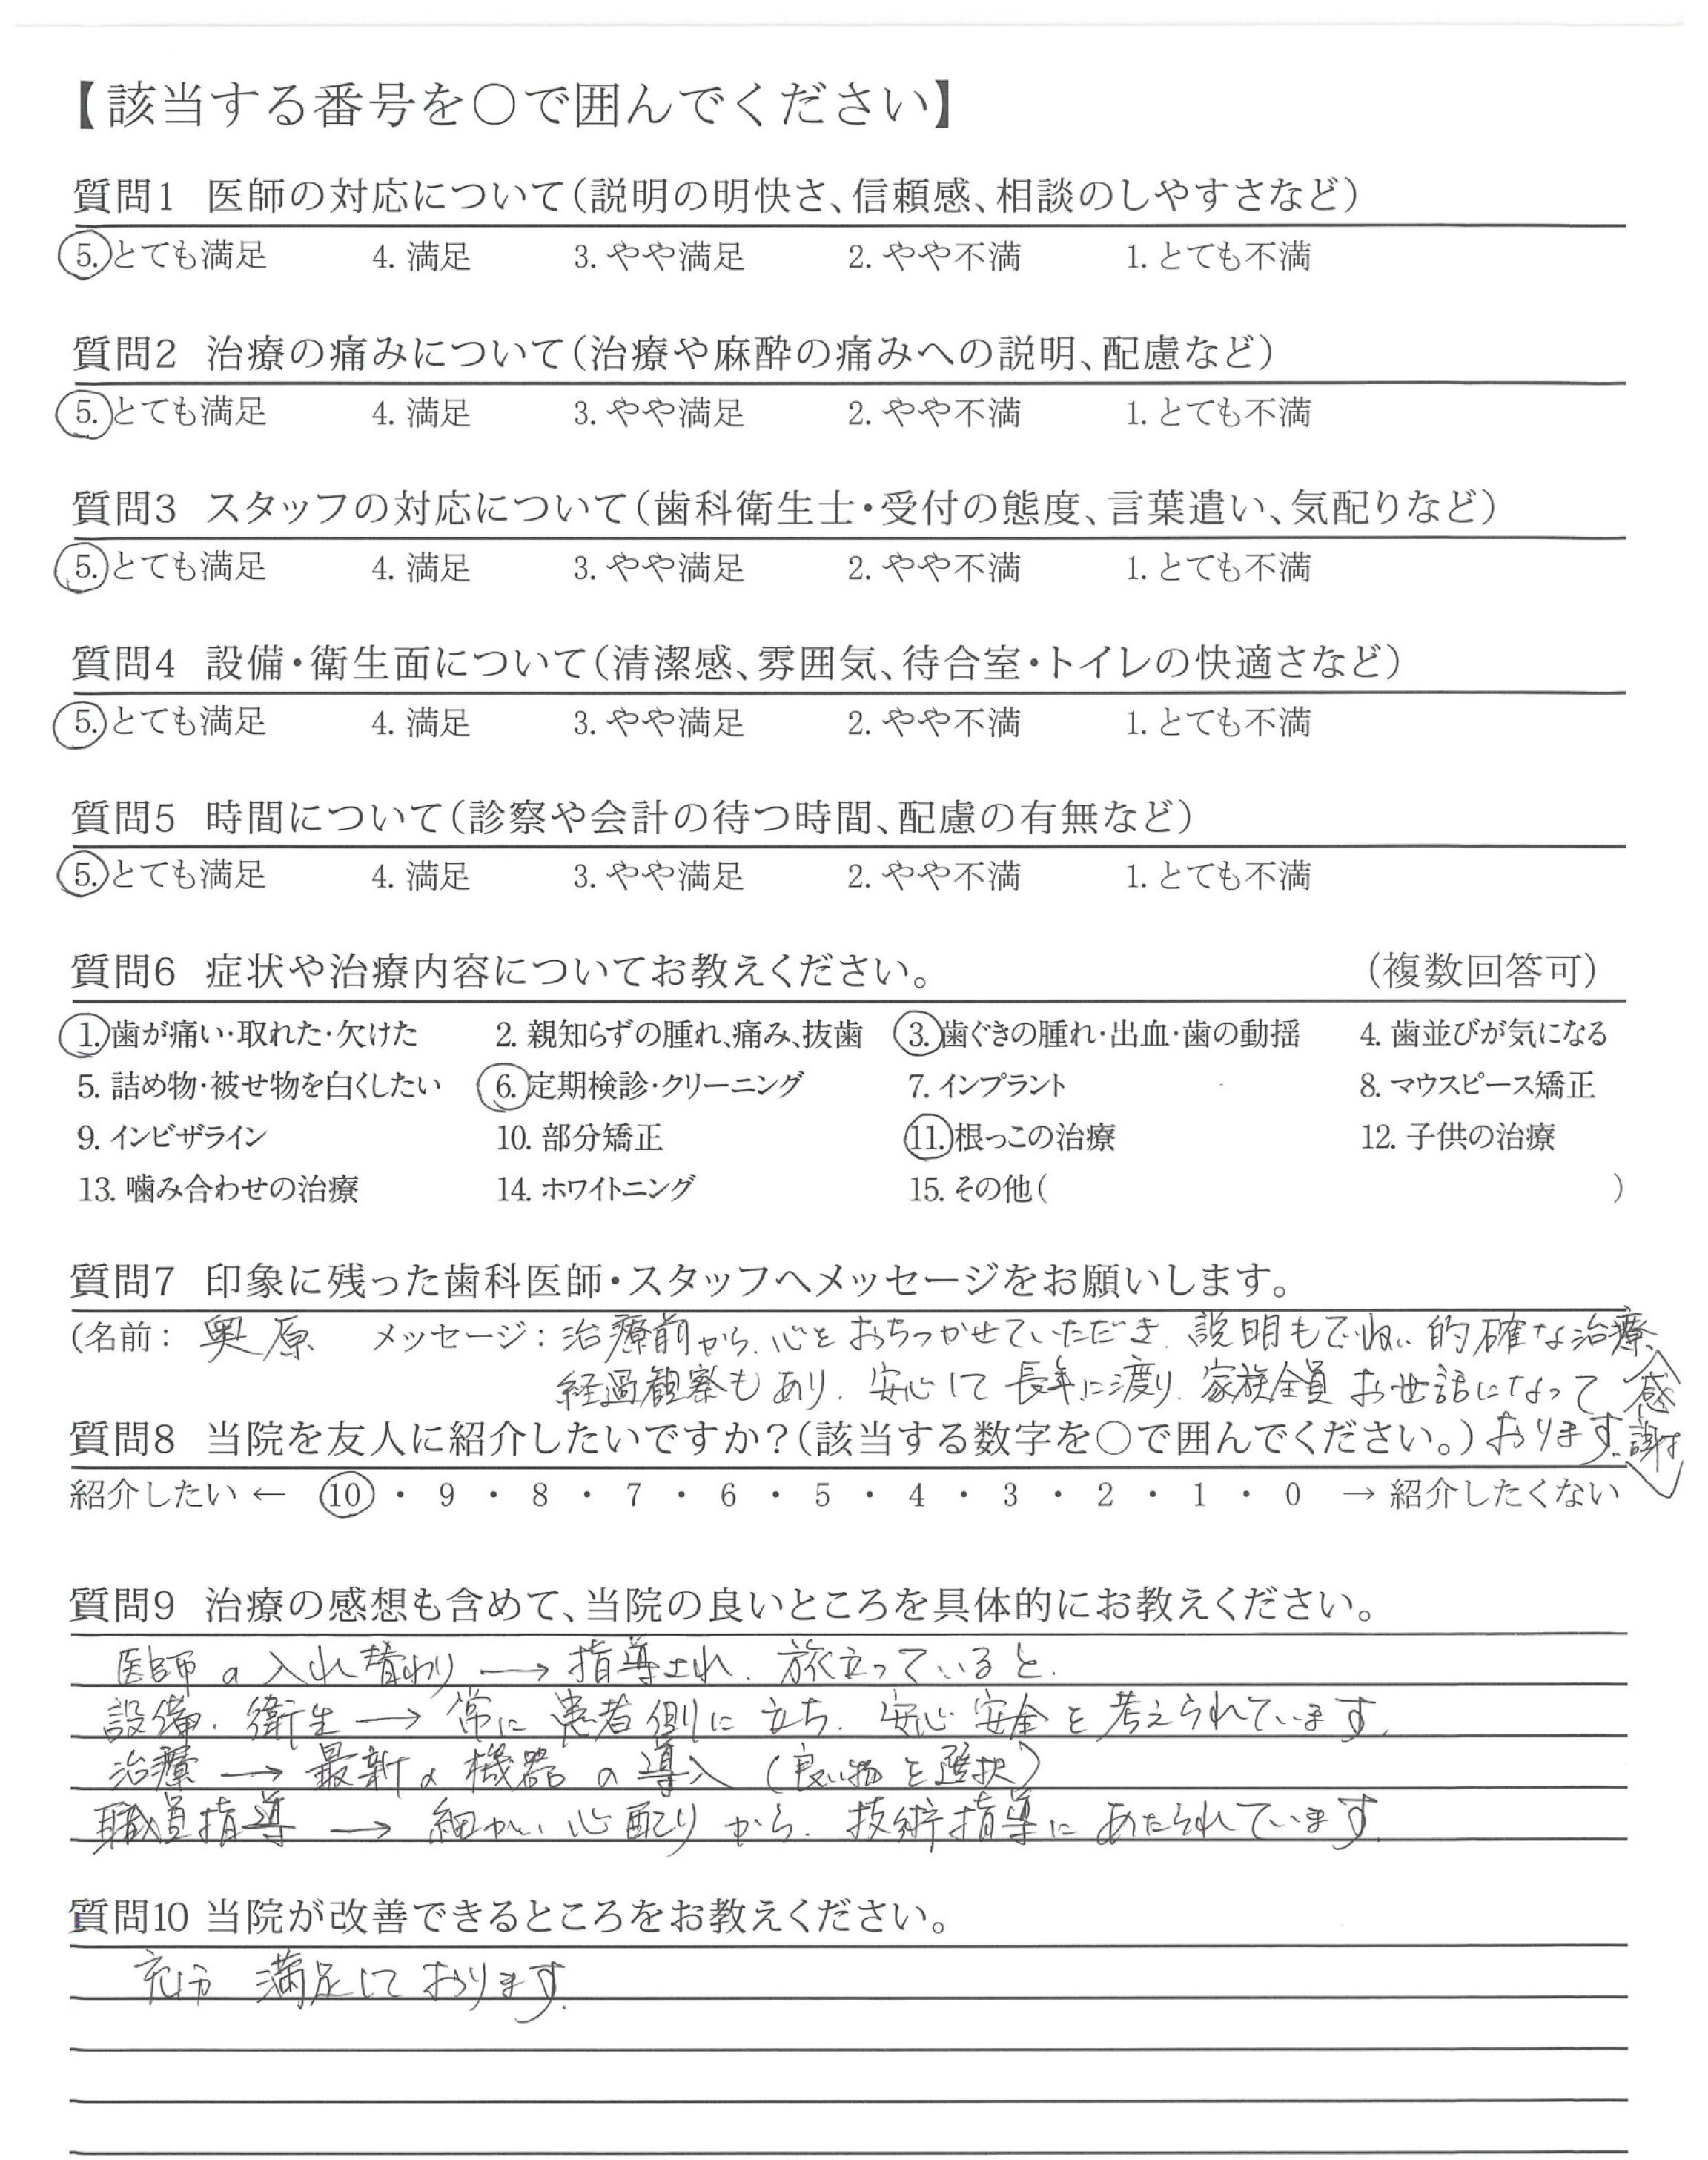 【該当する番号を○で囲んでください】
質問1 医師の対応について(説明の明快さ、信頼感、相談のしやすさなど)
5. とても満足 4. 満足 3. やや満足 2. やや不満 1. とても不満
質問2 治療の痛みについて(治療や麻酔の痛みへの説明、配慮など)
5. とても満足 4. 満足 3. やや満足 2. やや不満 1. とても不満
質問3 スタッフの対応について(歯科衛生士・受付の態度、言葉遣い、気配りなど)
5. とても満足 4. 満足 3. やや満足 2. やや不満 1. とても不満
質問4 設備・衛生面について(清潔感、雰囲気、待合室・トイレの快適さなど)
5. とても満足 4. 満足 3. やや満足 2. やや不満 1. とても不満
質問5 時間について(診察や会計の待つ時間、配慮の有無など)
5. とても満足 4. 満足 3. やや満足 2. やや不満 1. とても不満
質問6 症状や治療内容についてお教えください。 (複数回答可)
1. 歯が痛い・取れた・欠けた 2. 親知らずの腫れ、痛み、抜歯 3. 歯ぐきの腫れ・出血・歯の動揺 4. 歯並びが気になる
5. 詰め物・被せ物を白くしたい 6. 定期検診・クリーニング 7. インプラント 8. マウスピース矯正
9. インビザライン 10. 部分矯正 11. 根っこの治療 12. 子供の治療
13. 噛み合わせの治療 14. ホワイトニング 15. その他( )
質問7 印象に残った歯科医師・スタッフへメッセージをお願いします。
(名前: 奥原 メッセージ: 治療前から、心をおちつかせていただき、説明もていねい 的確な治療、
経過観察もあり、安心して長年に渡り、家族全員お世話になって
おります。感謝
質問8 当院を友人に紹介したいですか?(該当する数字を○で囲んでください。)
紹介したい ← 10 ・ 9 ・ 8 ・ 7 ・ 6 ・ 5 ・ 4 ・ 3 ・ 2 ・ 1 ・ 0 → 紹介したくない
質問9 治療の感想も含めて、当院の良いところを具体的にお教えください。
医師の入れ替わり → 指導され、旅立っていると、
設備、衛生 → 常に患者側に立ち、安心安全を考えられています。
治療 → 最新の機器の導入(良い物を選択)
職員指導 → 細かい心配りから、技術指導にあたられています。
質問10 当院が改善できるところをお教えください。
充分 満足しております。